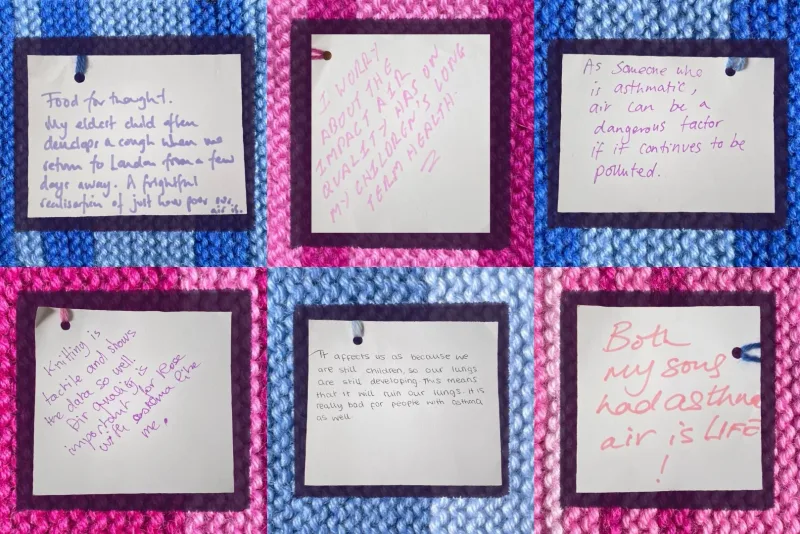 Food for thought.
My eldest child often
develops a cough when we
return to London from a few
days away. A frightful
realisation of just how poor our
air is.
I WORRY
ABOUT THE
IMPACT AIR
QUALITY HAS ON
MY CHILDREN'S LONG
TERM HEALTH.
As someone who
is asthmatic,
air can be a
dangerous factor
if it continues to be
polluted.
Knitting is
tactile and shows
the data so well.
Air quality is
important for those
with asthma like
me.
It affects us as because we
are still children, so our lungs
are still developing. This means
that it will ruin our lungs. It is
really bad for people with asthma
as well.
Both
my sons
had asthma
air is LIFE
!